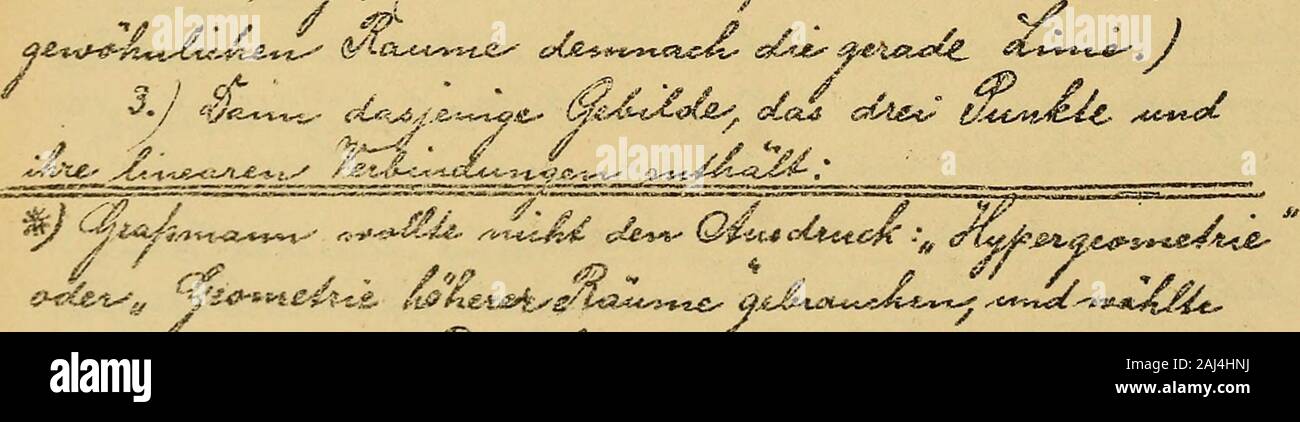 gewöhnlichen Raume demnach die gerade Linie.)
3.) Dann dasjenige Gebilde, das drei Punkte und
ihre linearen Verbindungen enthält:
*) Graßmann wollte nicht den Ausdruck: „Hypergeometrie"
oder „Geometrie höherer Räume" gebrauchen, und wählte
alamy
alamy
2AJ4HNJ
www.alamy.com